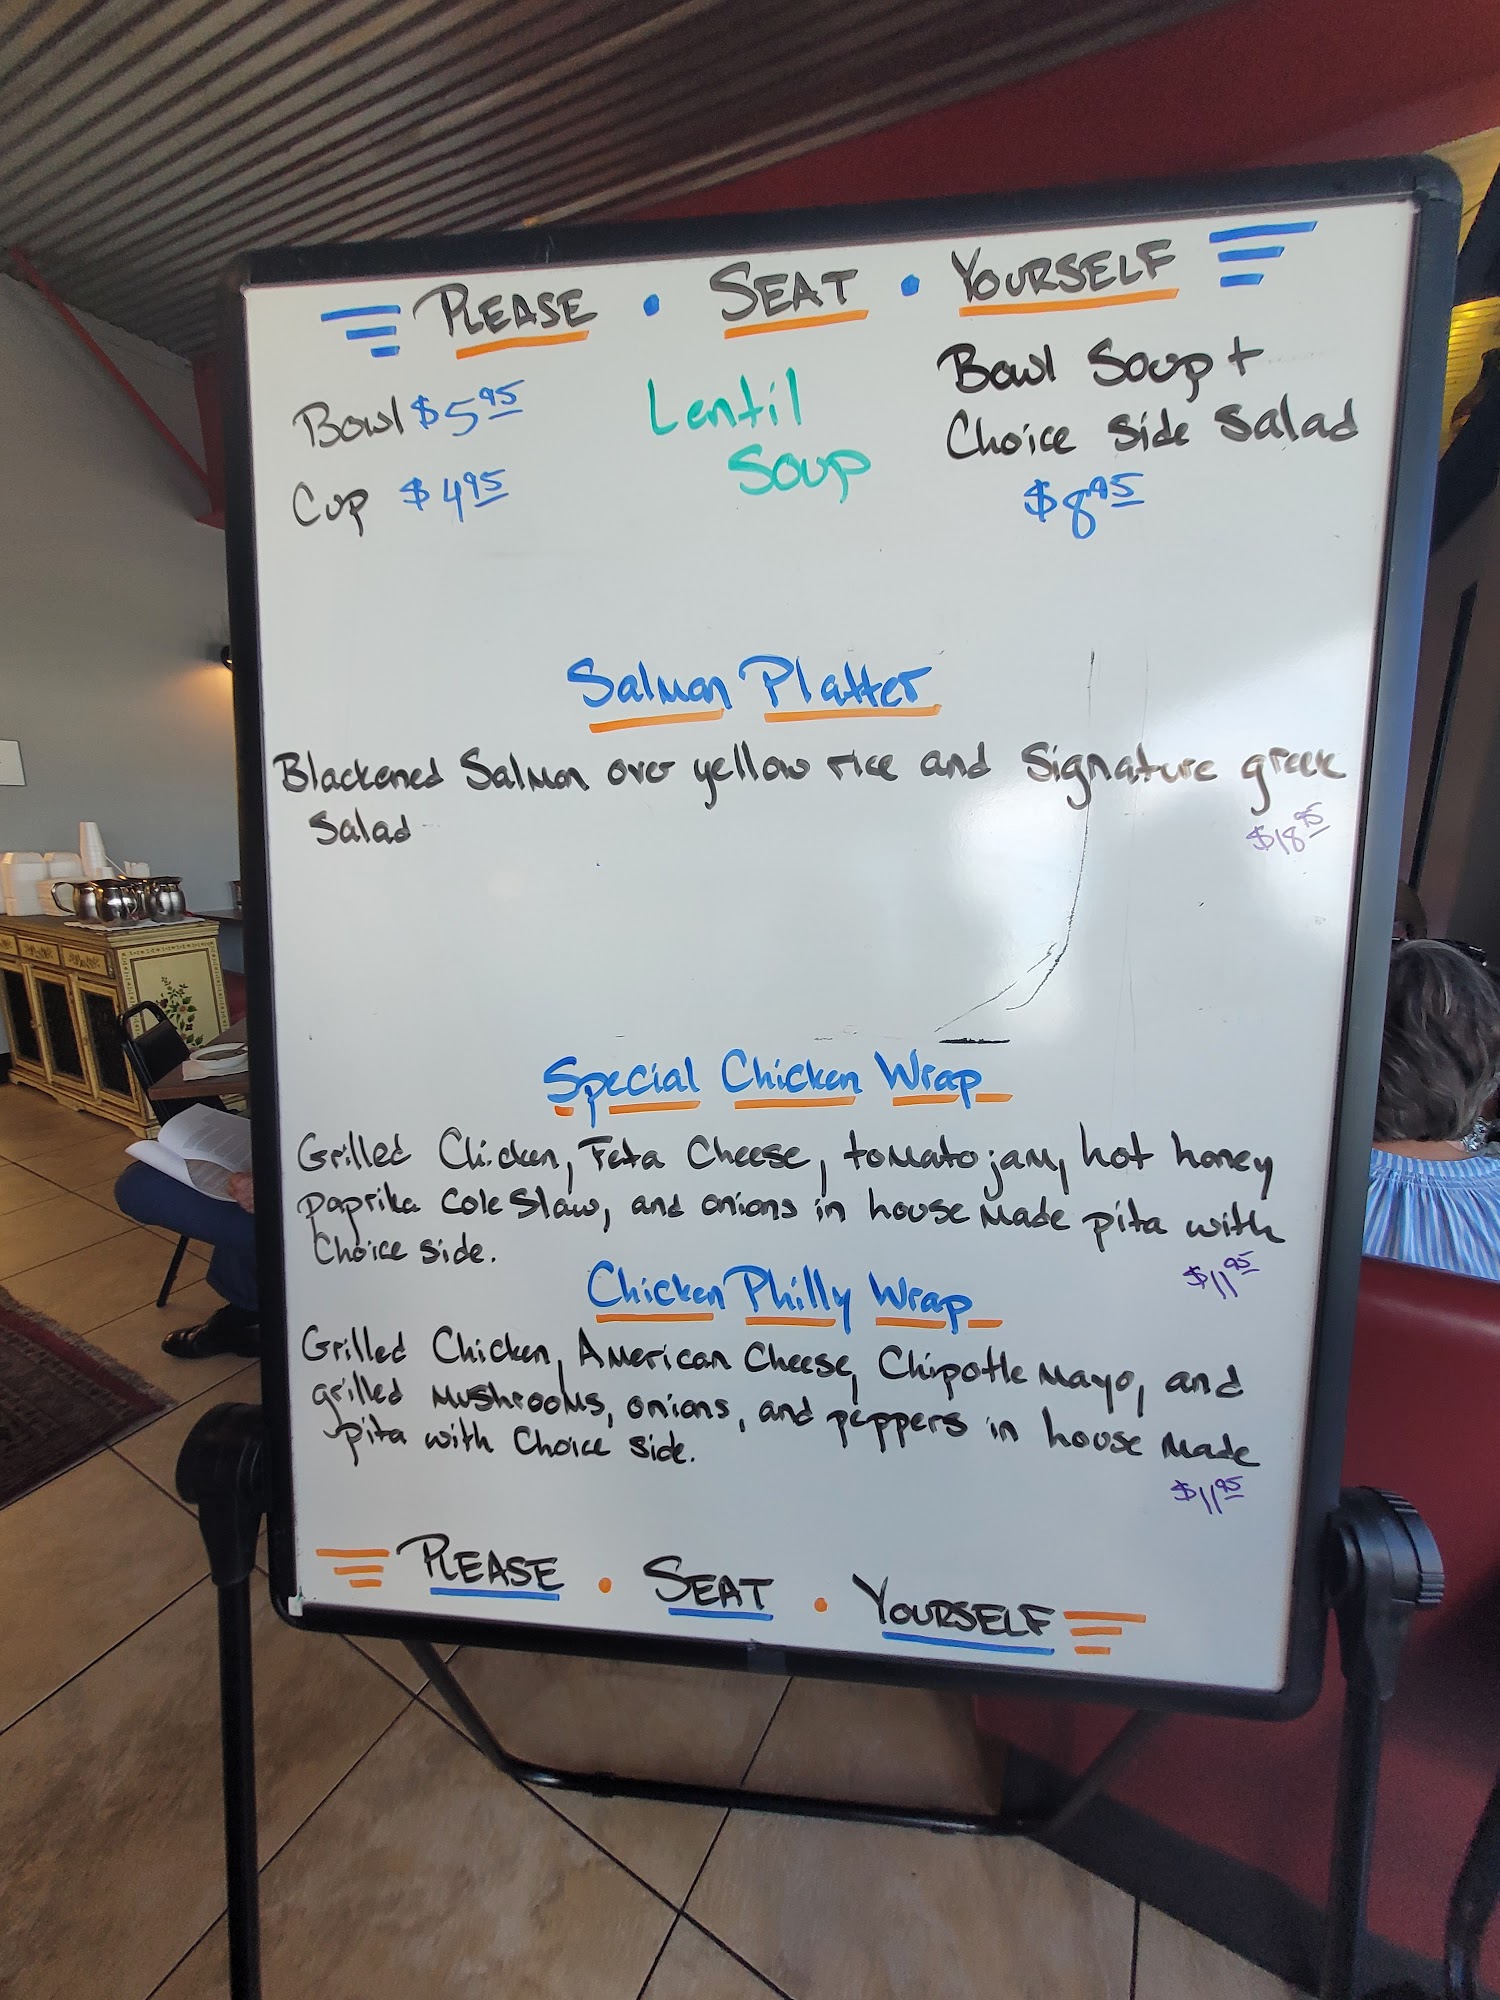 PLEASE • SEAT • YOURSELF
Bowl $5.95
Cup $4.95
Lentil
Soup
Bowl Soup +
Choice Side Salad
$8.95
Salmon Platter
Blackened Salmon over yellow rice and Signature greek
Salad
$18.95
Special Chicken Wrap
Grilled Chicken, Feta Cheese, tomato jam, hot honey
paprika Cole Slaw, and onions in house made pita with
Choice side.
$11.95
Chicken Philly Wrap
Grilled Chicken, American Cheese, Chipotle Mayo, and
grilled mushrooms, onions, and peppers in house made
pita with Choice side.
$11.95
PLEASE • SEAT • YOURSELF